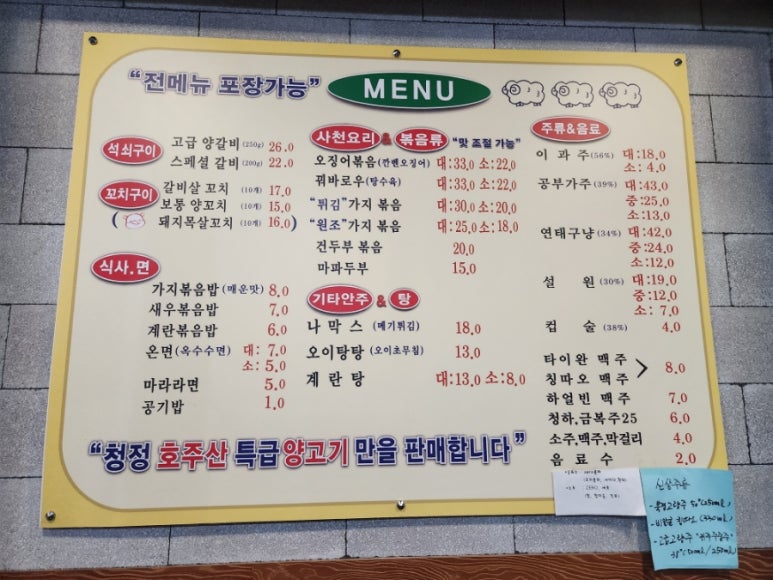 “전메뉴 포장가능” MENU
석쇠구이
고급 양갈비 (250g) 26.0
스페셜 갈비 (200g) 22.0
꼬치구이
갈비살 꼬치 (10개) 17.0
보통 양꼬치 (10개) 15.0
( 돼지목살꼬치 (10개) 16.0 )
식사.면
가지볶음밥 (매운맛) 8.0
새우볶음밥 7.0
계란볶음밥 6.0
온면 (옥수수면) 대: 7.0
소: 5.0
마라라면 5.0
공기밥 1.0
사천요리 & 볶음류 “맛 조절 가능”
오징어볶음 (깐밴오징어) 대:33.0 소:22.0
꿔바로우 (탕수육) 대:33.0 소:22.0
“튀김”가지 볶음 대:30.0 소:20.0
“원조”가지 볶음 대:25.0 소:18.0
건두부 볶음 20.0
마파두부 15.0
기타안주 & 탕
나막스 (메기튀김) 18.0
오이탕탕 (오이초무침) 13.0
계란탕 대:13.0 소:8.0
주류&음료
이과주 (56%) 대:18.0
소: 4.0
공부가주 (39%) 대:43.0
중:25.0
소:13.0
연태구냥 (34%) 대:42.0
중:24.0
소:12.0
설원 (30%) 대:19.0
중:12.0
소: 7.0
컵술 (38%) 4.0
타이완 맥주
칭따오 맥주 > 8.0
하얼빈 맥주 7.0
청하.금복주25 6.0
소주.맥주.막걸리 4.0
음료수 2.0
“청정 호주산 특급양고기 만을 판매합니다”